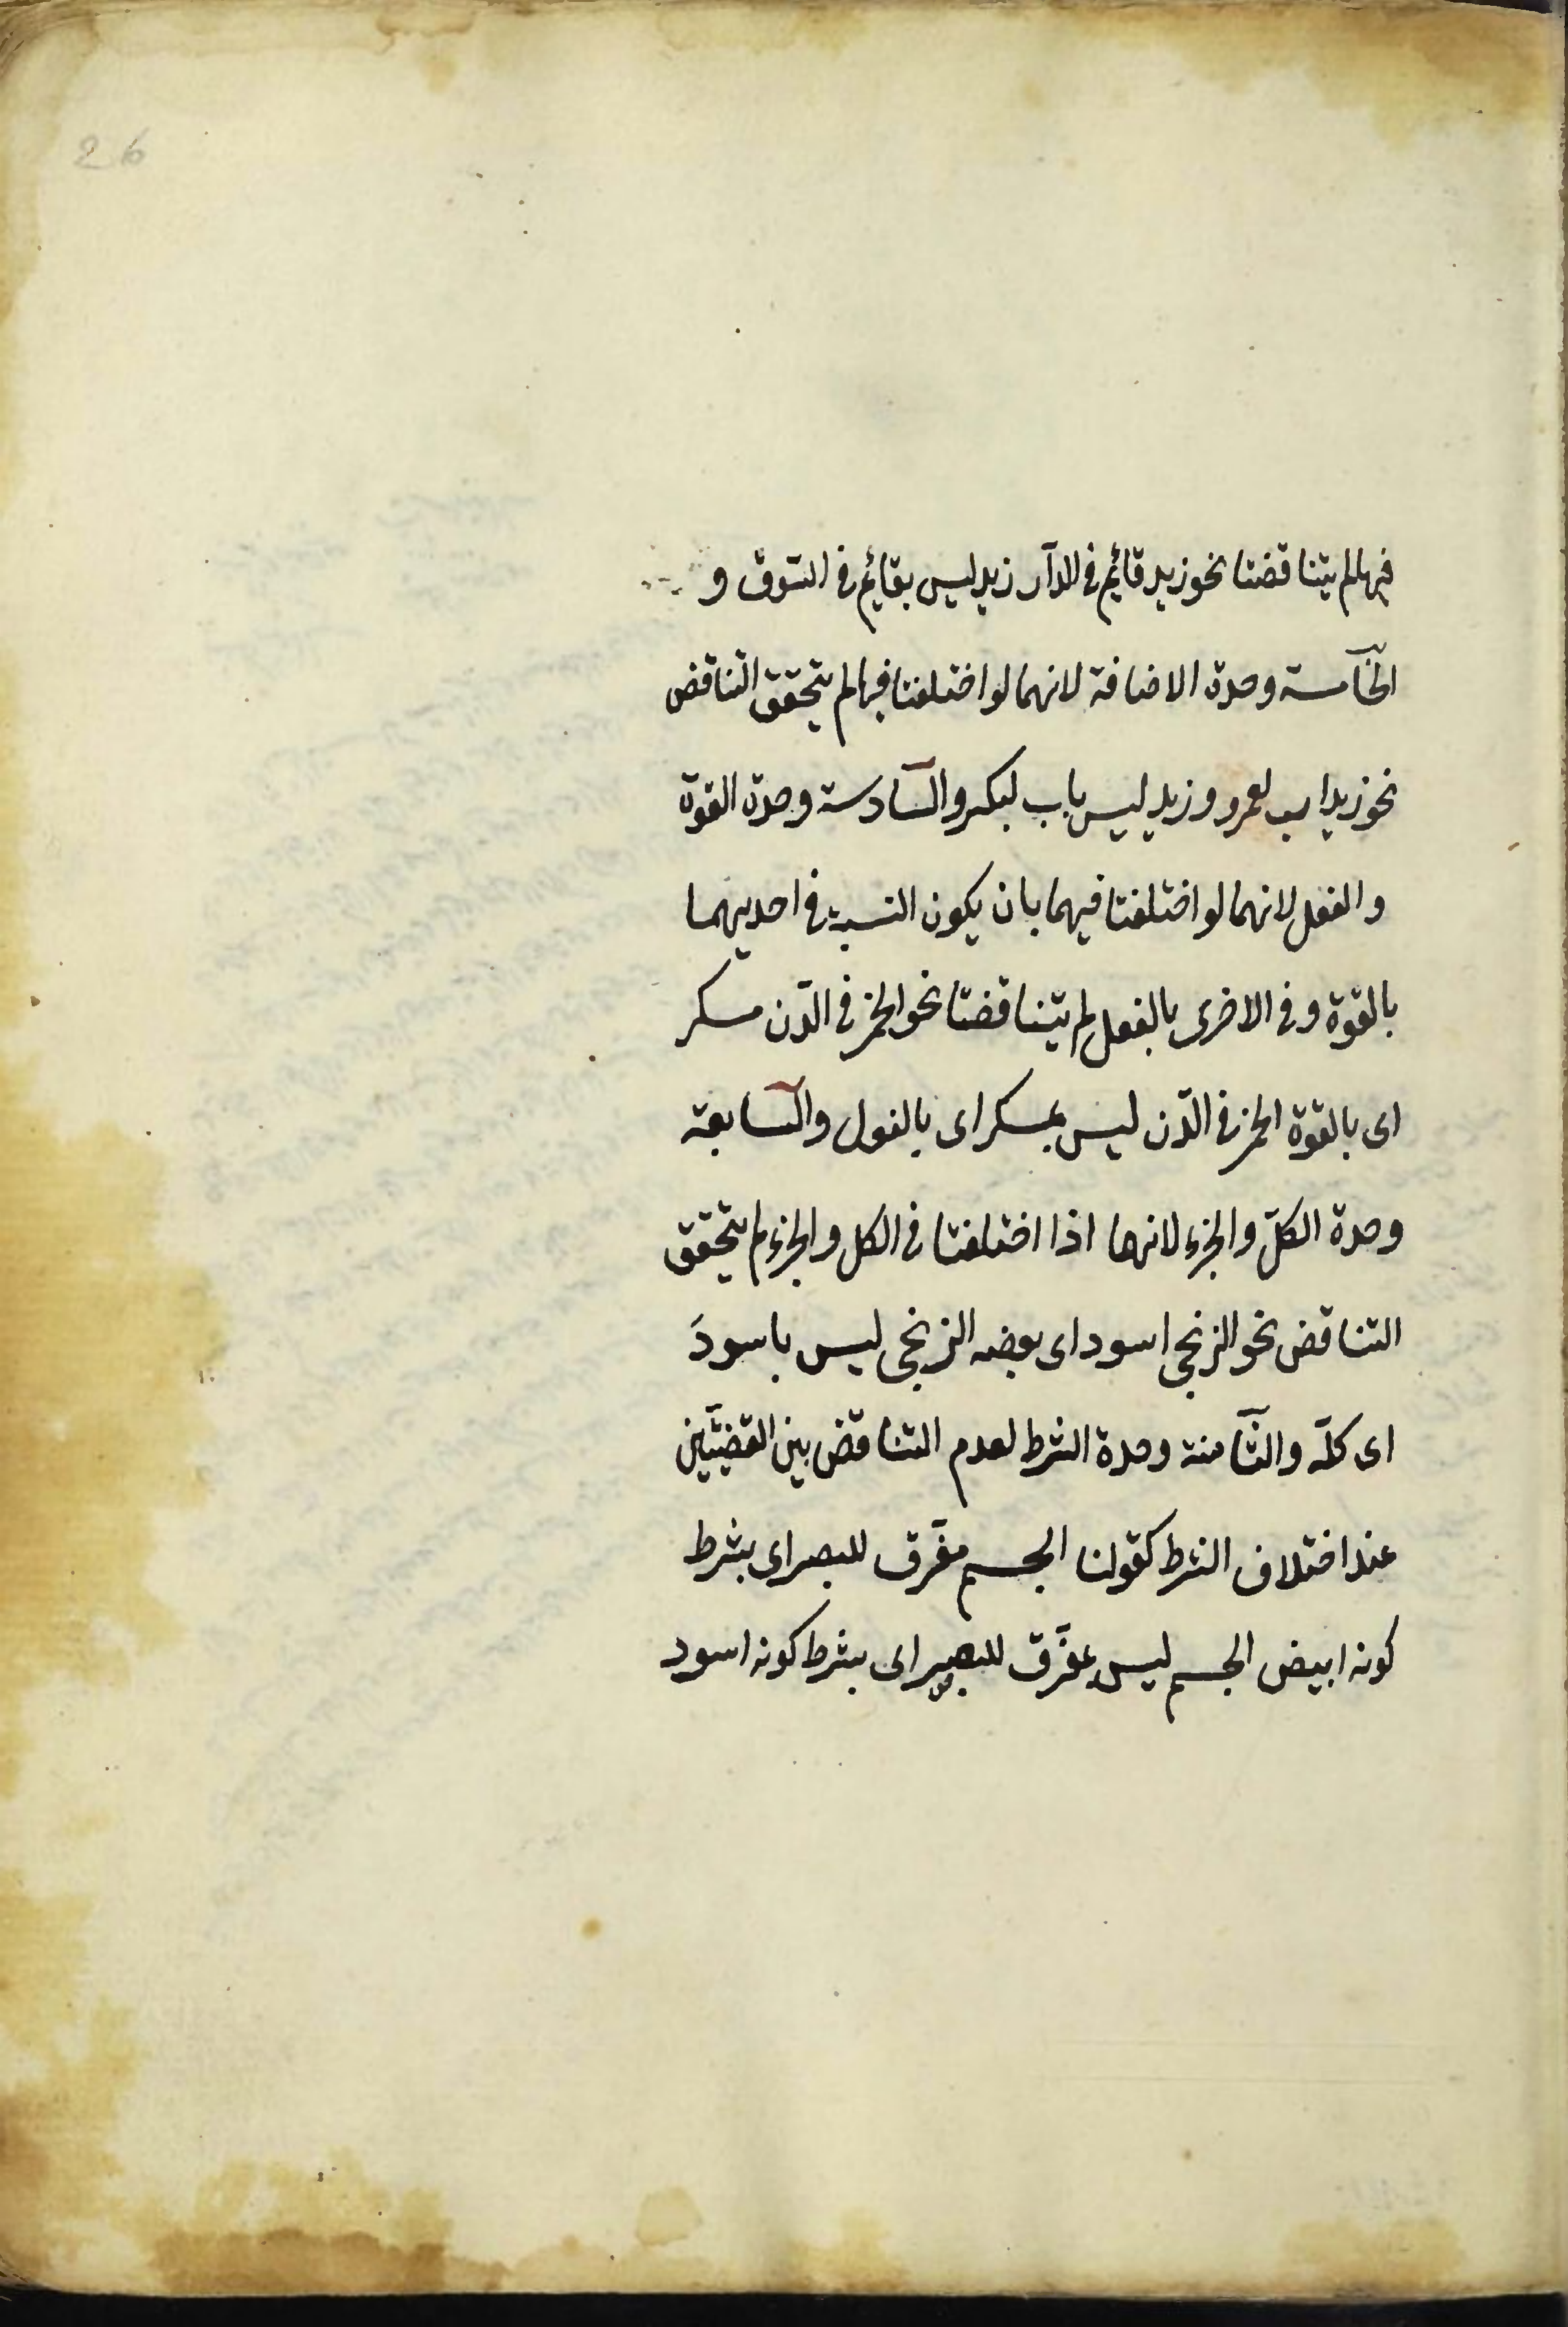 26
فيها لم يتناقضتا نحو زيد قائم فى الدّار زيد ليس بقائم فى السّوق و
الخامسة وحدة الاضافة لانهما لو اختلفتا فيها لم يتحقق التناقض
نحو زيد اب لعمرو وزيد ليس باب لبكر والسّادسة وحدة القوة
والفعل لانهما لو اختلفتا فيهما بان يكون النسبة فى احديهما
بالقوة وفى الاخرى بالفعل لم يتناقضتا نحو الخمر فى الدّن مسكر
اى بالقوة الخمر فى الدّن ليس بمسكر اى بالفعل والسّابعة
وحدة الكلّ والجزء لانهما اذا اختلفتا فى الكل والجزء لم يتحقق
التناقض نحو الزنجى اسود اى بعضه الزنجى ليس باسودَ
اى كلّه والثّامنة وحدة الشرط لعدم التناقض بين القضيّتين
عند اختلاف الشرط كقولنا الجسم مفرّق للبصر اى بشرط
كونه ابيض الجسم ليس بمفرّق للبصر اى بشرط كونه اسود